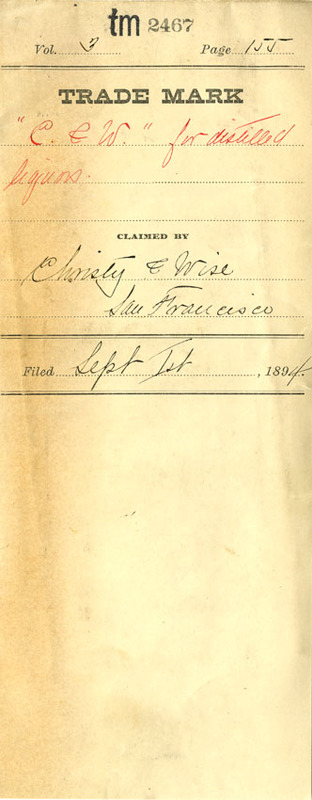 tm 2467
Vol. 3 Page 155
TRADE MARK
"C. & W." for distilled
liquors.
CLAIMED BY
Christy & Wise
San Francisco
Filed Sept 1st, 1894.